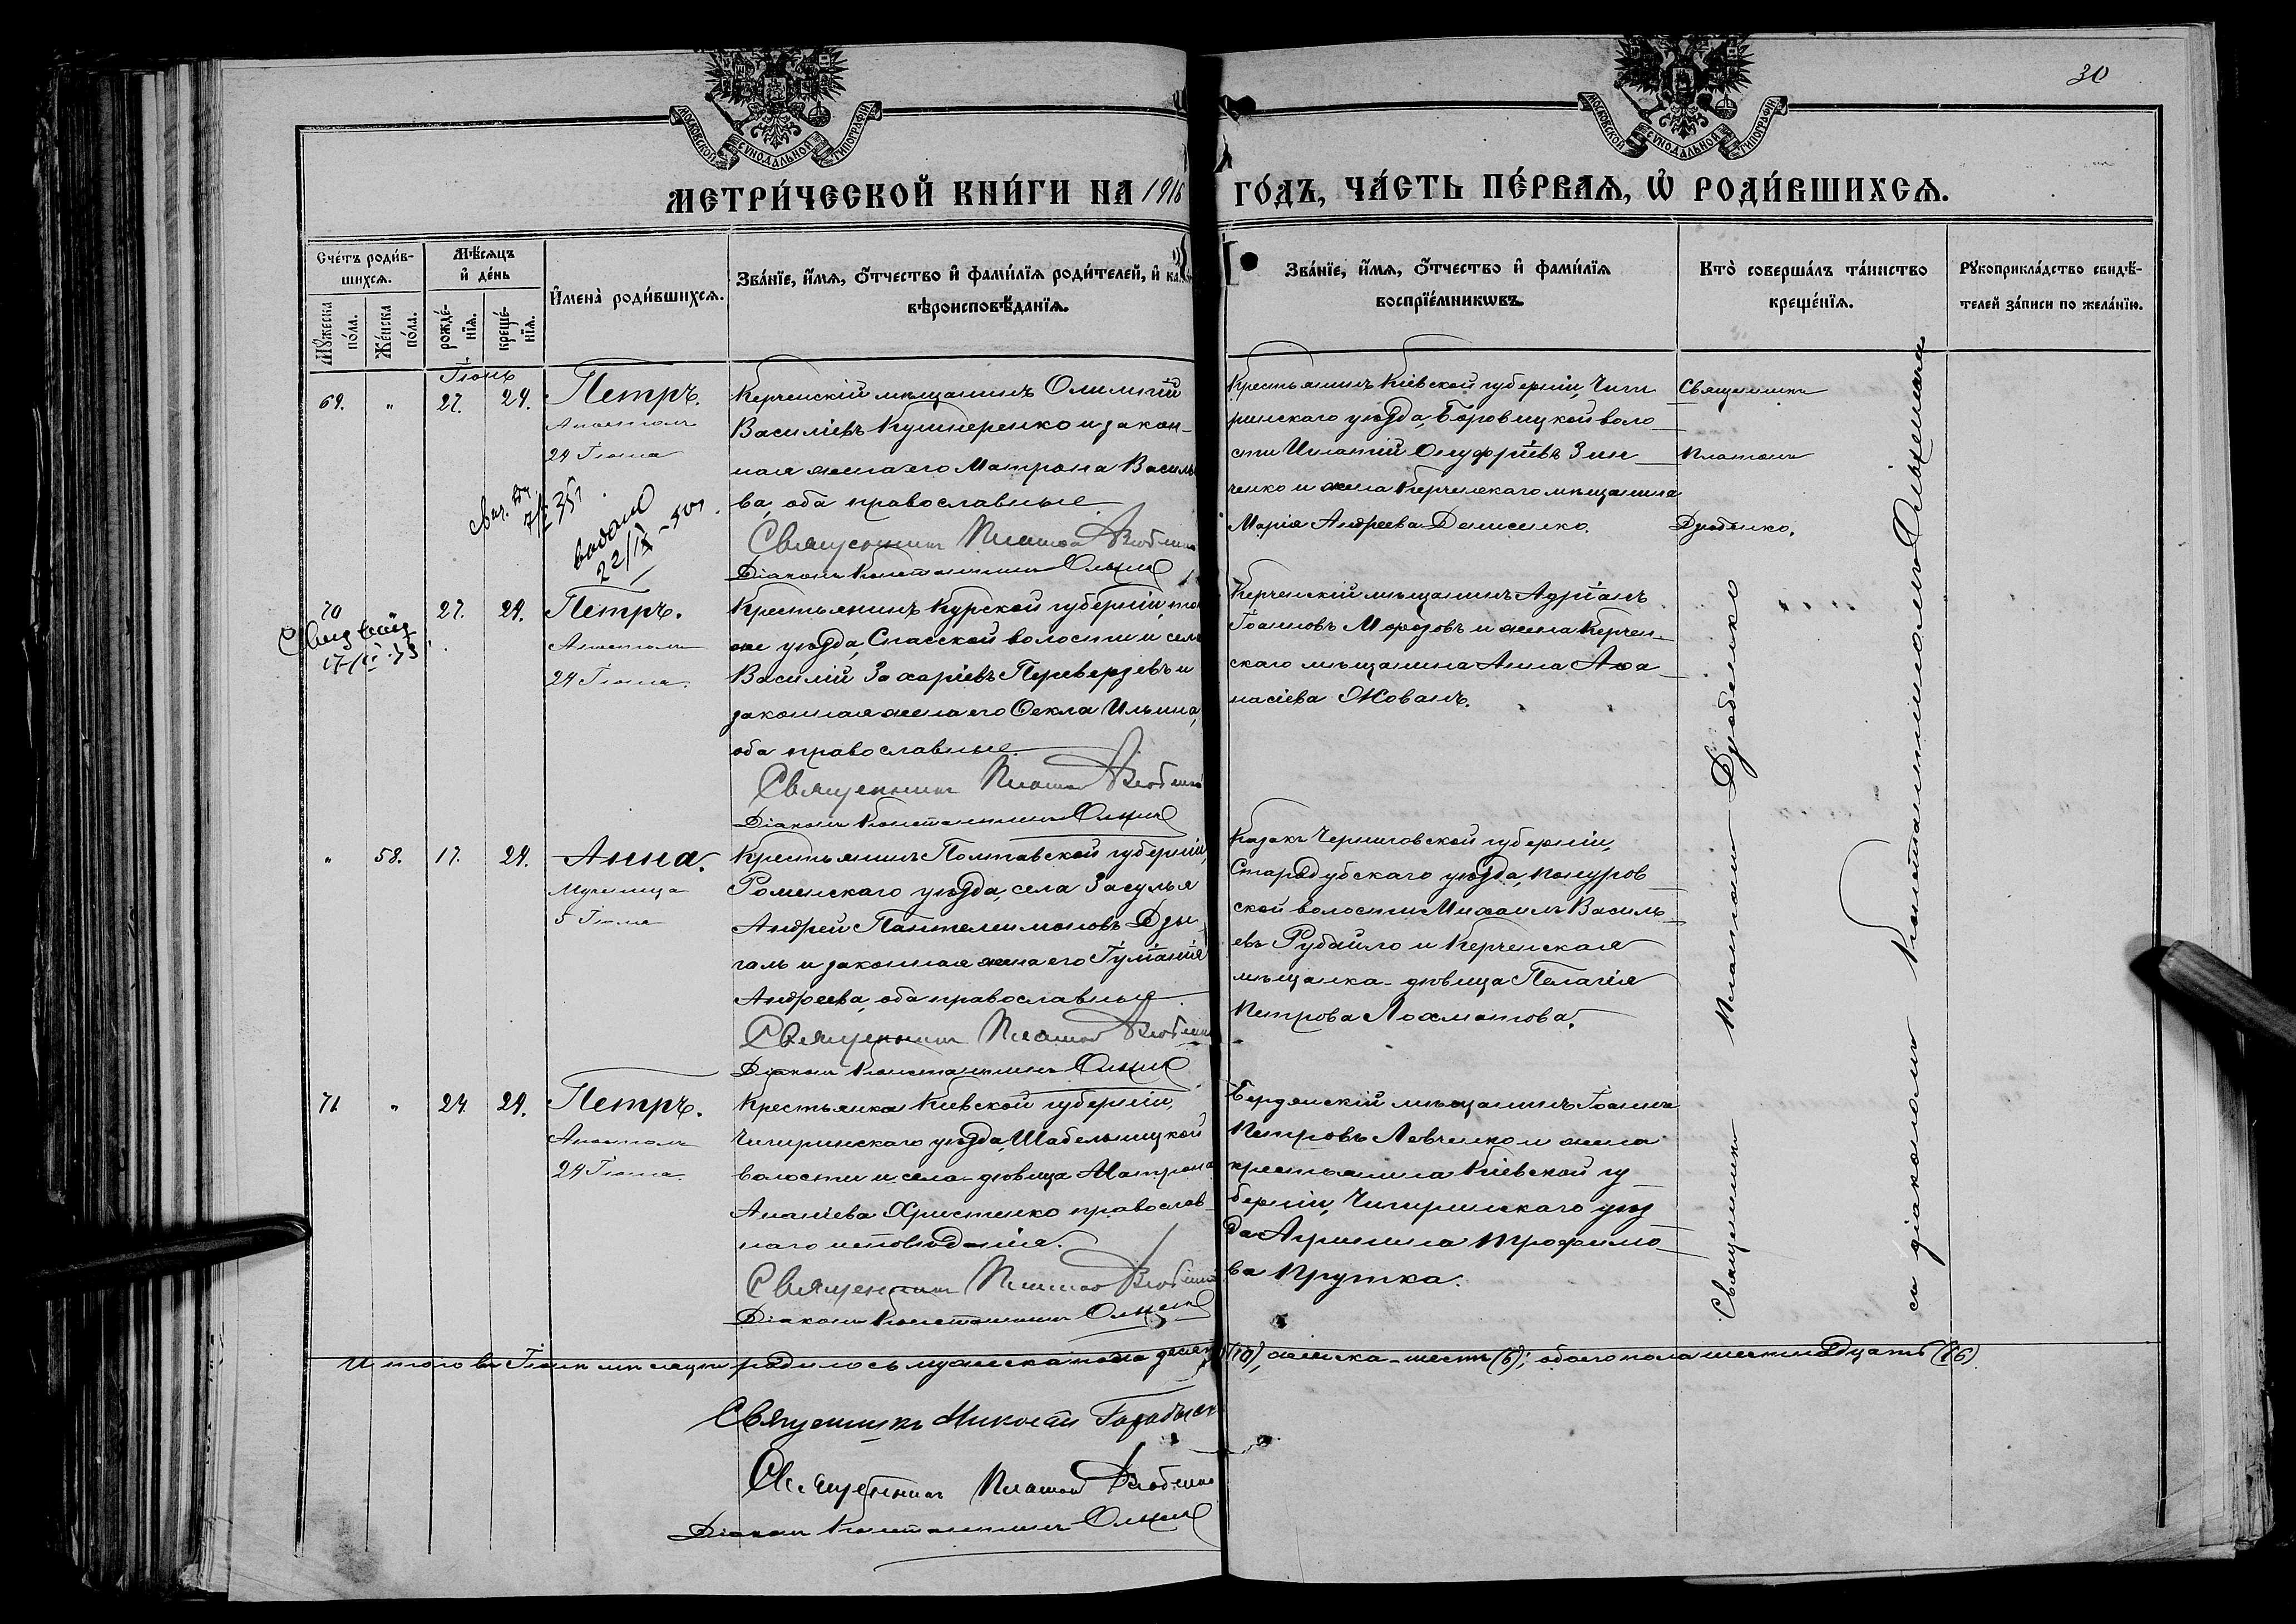 30
МОСКОВСКОЙ СѴНОДАЛЬНОЙ ТИПОГРАФІИ
МОСКОВСКОЙ СѴНОДАЛЬНОЙ ТИПОГРАФІИ
МЕТРИ́ЧЕСКОЙ КНИ́ГИ НА 1916 ГО́ДЪ, ЧА́СТЬ ПЕ́РВАѦ, Ѡ҆ РОДИ́ВШИХСѦ.
Сче́тъ роди́вшихсѧ.
Мꙋ́жеска по́ла.
Же́нска по́ла.
Мѣ́сѧцъ и҆ де́нь
рожде́нїѧ.
креще́нїѧ.
И҆мена̀ роди́вшихсѧ.
Зва́нїе, и҆́мѧ, ѻ҆́тчество и҆ фами́лїѧ роди́телей, и҆
вѣроисповѣ́данїѧ.
Зва́нїе, и҆́мѧ, ѻ҆́тчество и҆ фами́лїѧ
воспрїе́мникѡвъ.
Кто̀ соверша́лъ та́инство
креще́нїѧ.
Рꙋкоприкла́дство свидѣ́-
телей за́писи по жела́нїю.
Іюнь
69. " 27. 29. Петръ.
Апостолъ
29 Іюня
выдано
22/IX-50г.
Керченскій мѣщанинъ Олимпій
Василіевъ Кушнеренко и закон-
ная жена его Матрона Василь
ва, оба православные
Священникъ Платонъ Дзюбенко
Діаконъ Константинъ
Крестьянинъ Кіевской губерніи, Чиги
ринскаго уѣзда, Боровицкой воло
сти Ипатій Онуфріевъ Зин
ченко и жена Керченскаго мѣщанина
Марія Андреева Денисенко.
Священникъ
Платонъ
Дзюбенко.
70 27. 29. Петръ.
Апостолъ
29 Іюня.
Крестьянинъ Курской губерніи, то
же уѣзда, Спасской волости и села
Василій Захаріевъ Переверзевъ и
законная жена его Ѳекла Ильина,
оба православные.
Священникъ Платонъ Дзюбенко
Діаконъ Константинъ
Керченскій мѣщанинъ Адріанъ
Іоанновъ Морозовъ и жена Керчен-
скаго мѣщанина Анна Аѳа
насіева Жованъ.
" 58. 17. 29. Анна.
Мученица
5 Іюля
Крестьянинъ Полтавской губерніи,
Роменскаго уѣзда, села Засулья
Андрей Пантелеимоновъ Дзы
галь и законная жена его Іуліанія
Андреева, оба православные
Священникъ Платонъ Дзюбенко
Діаконъ Константинъ
Казакъ Черниговской губерніи,
Стародубскаго уѣзда, Понуров
ской волости Михаилъ Василь
евъ Рубайло и Керченская
мѣщанка-дѣвица Пелагія
Петрова Лохматова.
71 " 24 29. Петръ.
Апостолъ
29 Іюня.
Крестьянка Кіевской губерніи,
Чигиринскаго уѣзда, Шабельницкой
волости и села-дѣвица Матрона
Ананіева Христенко православ
наго исповѣданія.
Священникъ Платонъ Дзюбенко
Діаконъ Константинъ
Бердянскій мѣщанинъ Іоаннъ
Петровъ Левченко и жена
крестьянина Кіевской гу
берніи, Чигиринскаго уѣз
да Агрипина Трофимо
ва Крутка.
Священникъ Платонъ Дзюбенко
съ діакономъ Константиномъ
Итого въ Іюнѣ мѣсяцѣ родилось мужеска пола десять (10), женска-шесть (6); обоего пола шестнадцать (16).
Священникъ Николай
Священникъ Платонъ Дзюбенко
Діаконъ Константинъ